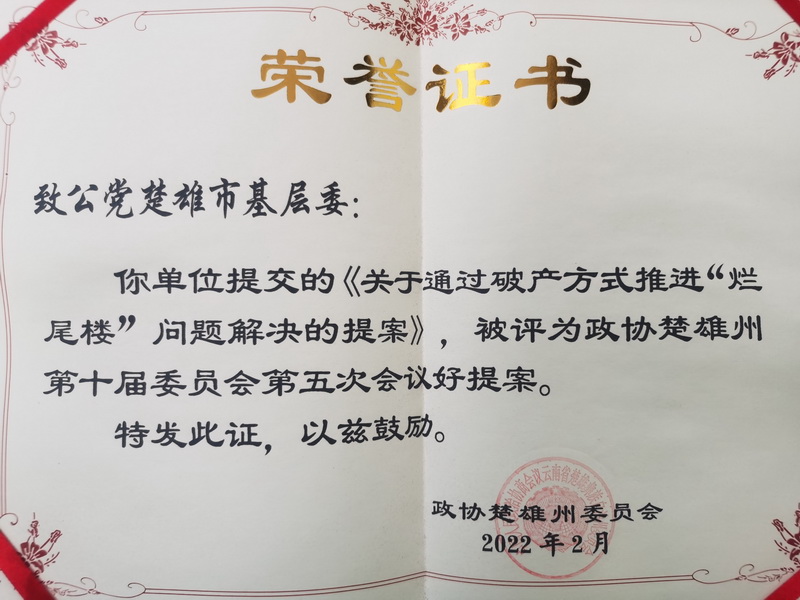 荣誉证书
致公党楚雄市基层委：
你单位提交的《关于通过破产方式推进“烂
尾楼”问题解决的提案》，被评为政协楚雄州
第十届委员会第五次会议好提案。
特发此证，以兹鼓励。
政协楚雄州委员会
2022年2月